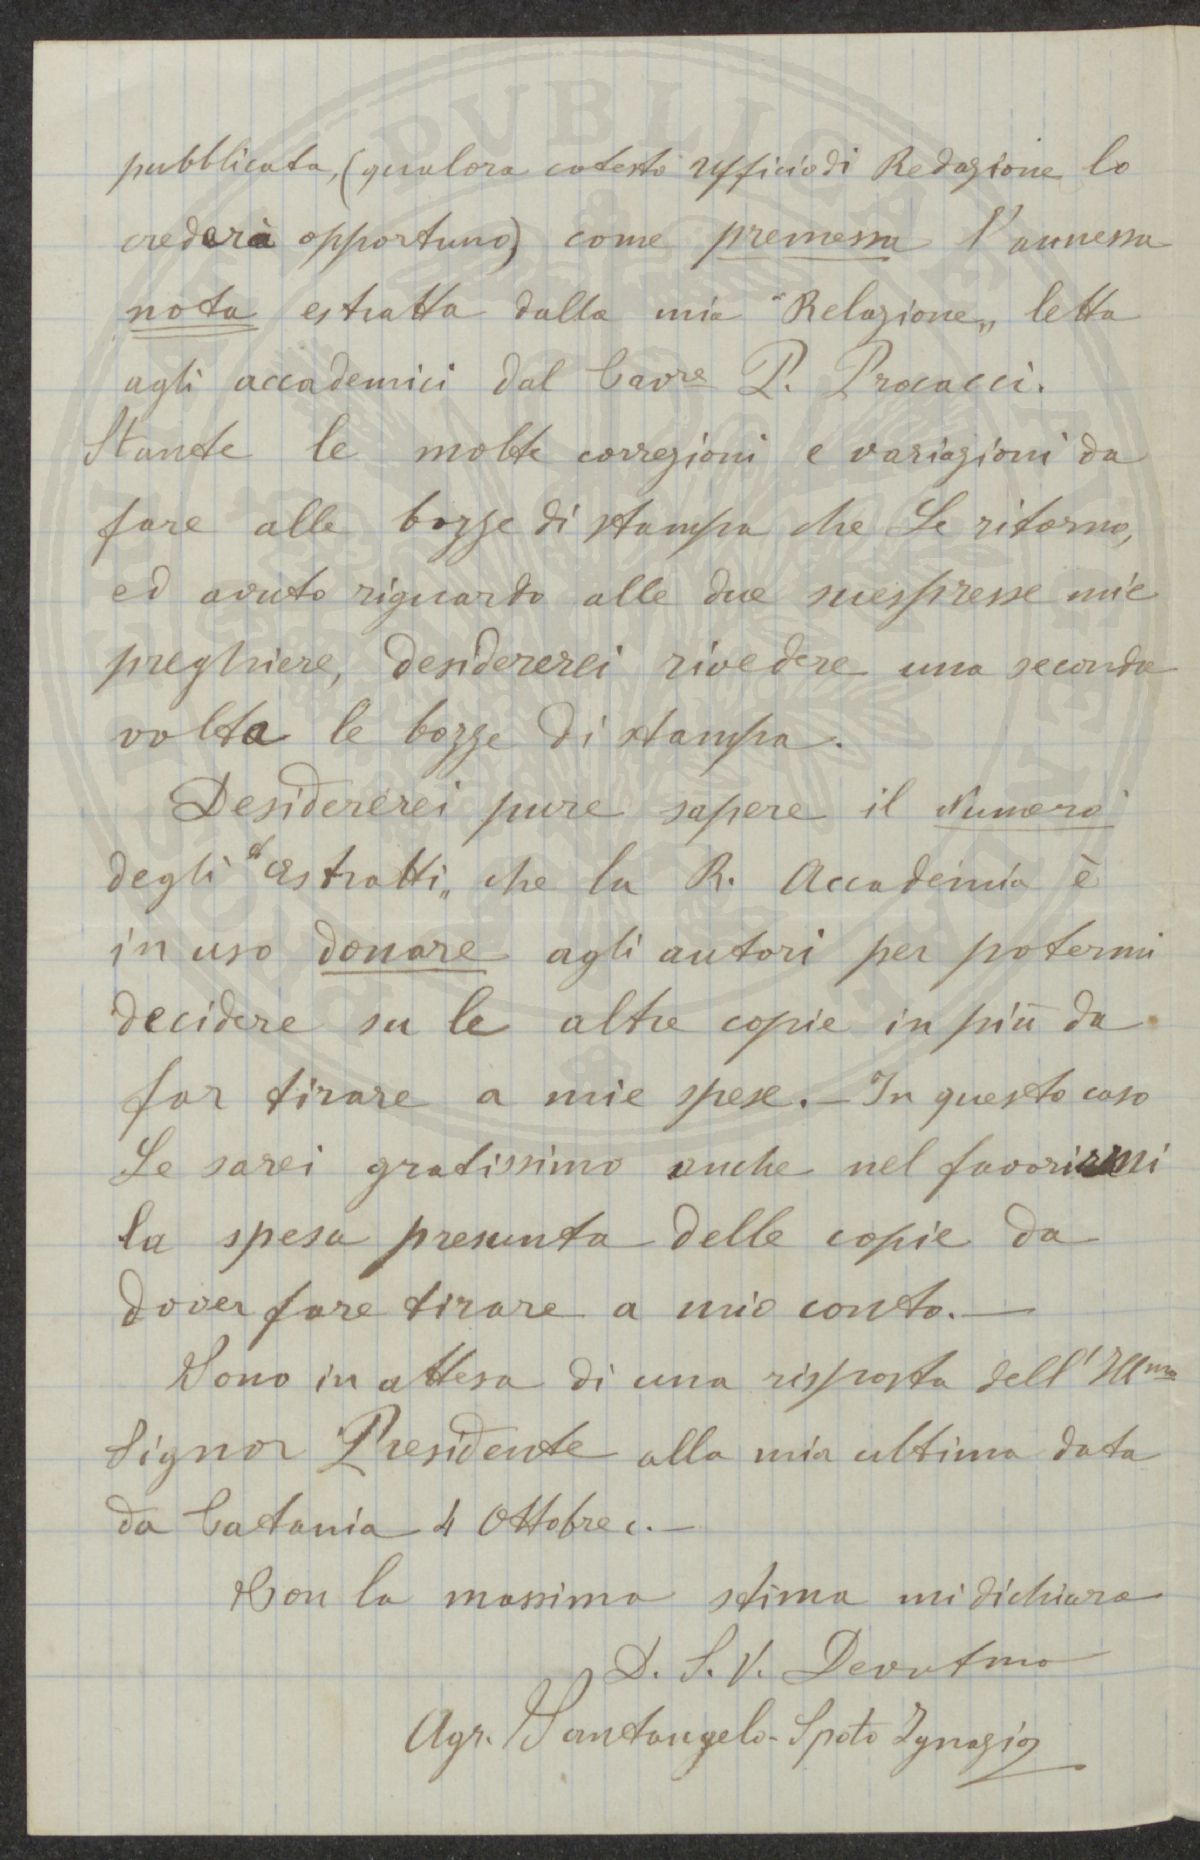 pubblicata, (qualora cotesto Ufficio di Redazione lo
crederà opportuno) come premessa l'annessa
nota estratta dalla mia "Relazione„ letta
agli accademici dal Cavre P. Procacci.
Stante le molte corregioni e variazioni da
fare alle bozze di stampa che Le ritorno,
ed avuto riguardo alle due suespresse mie
preghiere, desidererei rivedere una seconda
volta le bozze di stampa.
Desidererei pure sapere il Numero
degli "Estratti„ che la R. Accademia è
in uso donare agli autori per potermi
decidere su le altre copie in più da
far tirare a mie spese. — In questo caso
Le sarei gratissimo anche nel favorirmi
la spesa presunta delle copie da
dover fare tirare a mio conto. —
Sono in attesa di una risposta dell'Illmo
Signor Presidente alla mia ultima data
da Catania 4 Ottobre c. —
Con la massima stima mi dichiaro
D. S. V. Devotmo
Agr. Santangelo-Spoto Ignazio